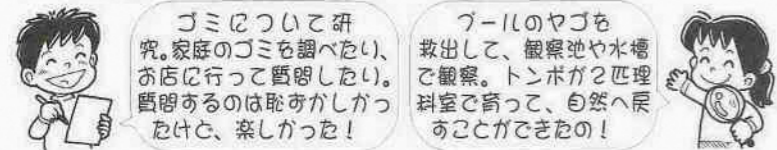 ゴミについて研
究。家庭のゴミを調べたり、
お店に行って質問したい。
質問するのは恥ずかしかっ
たけど、楽しかった！
プールのヤゴを
救出して、観察池や水槽
で観察。トンボが2匹理
科室で育って、自然へ戻
すことができたの！